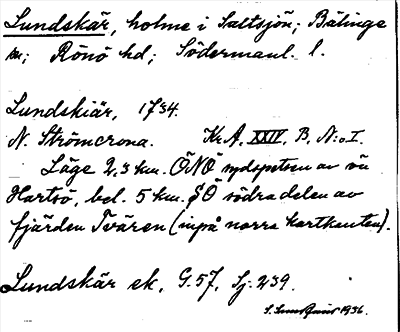 Lundskär, holme i Saltsjön; Bälinge
sn; Rönö hd; Södermanl. l.
Lundskiär, 1734.
N. Strömcrona. Kr. A. XXIV. B. N:o I.
Läge 2,3 km. ÖNÖ sydspetsen av
Hartsö, bel. 5 km. SÖ södra delen av
fjärden Tvären (inpå norra kartkanten).
Lundskär ek. G. 57, Sj. 239.
1936.